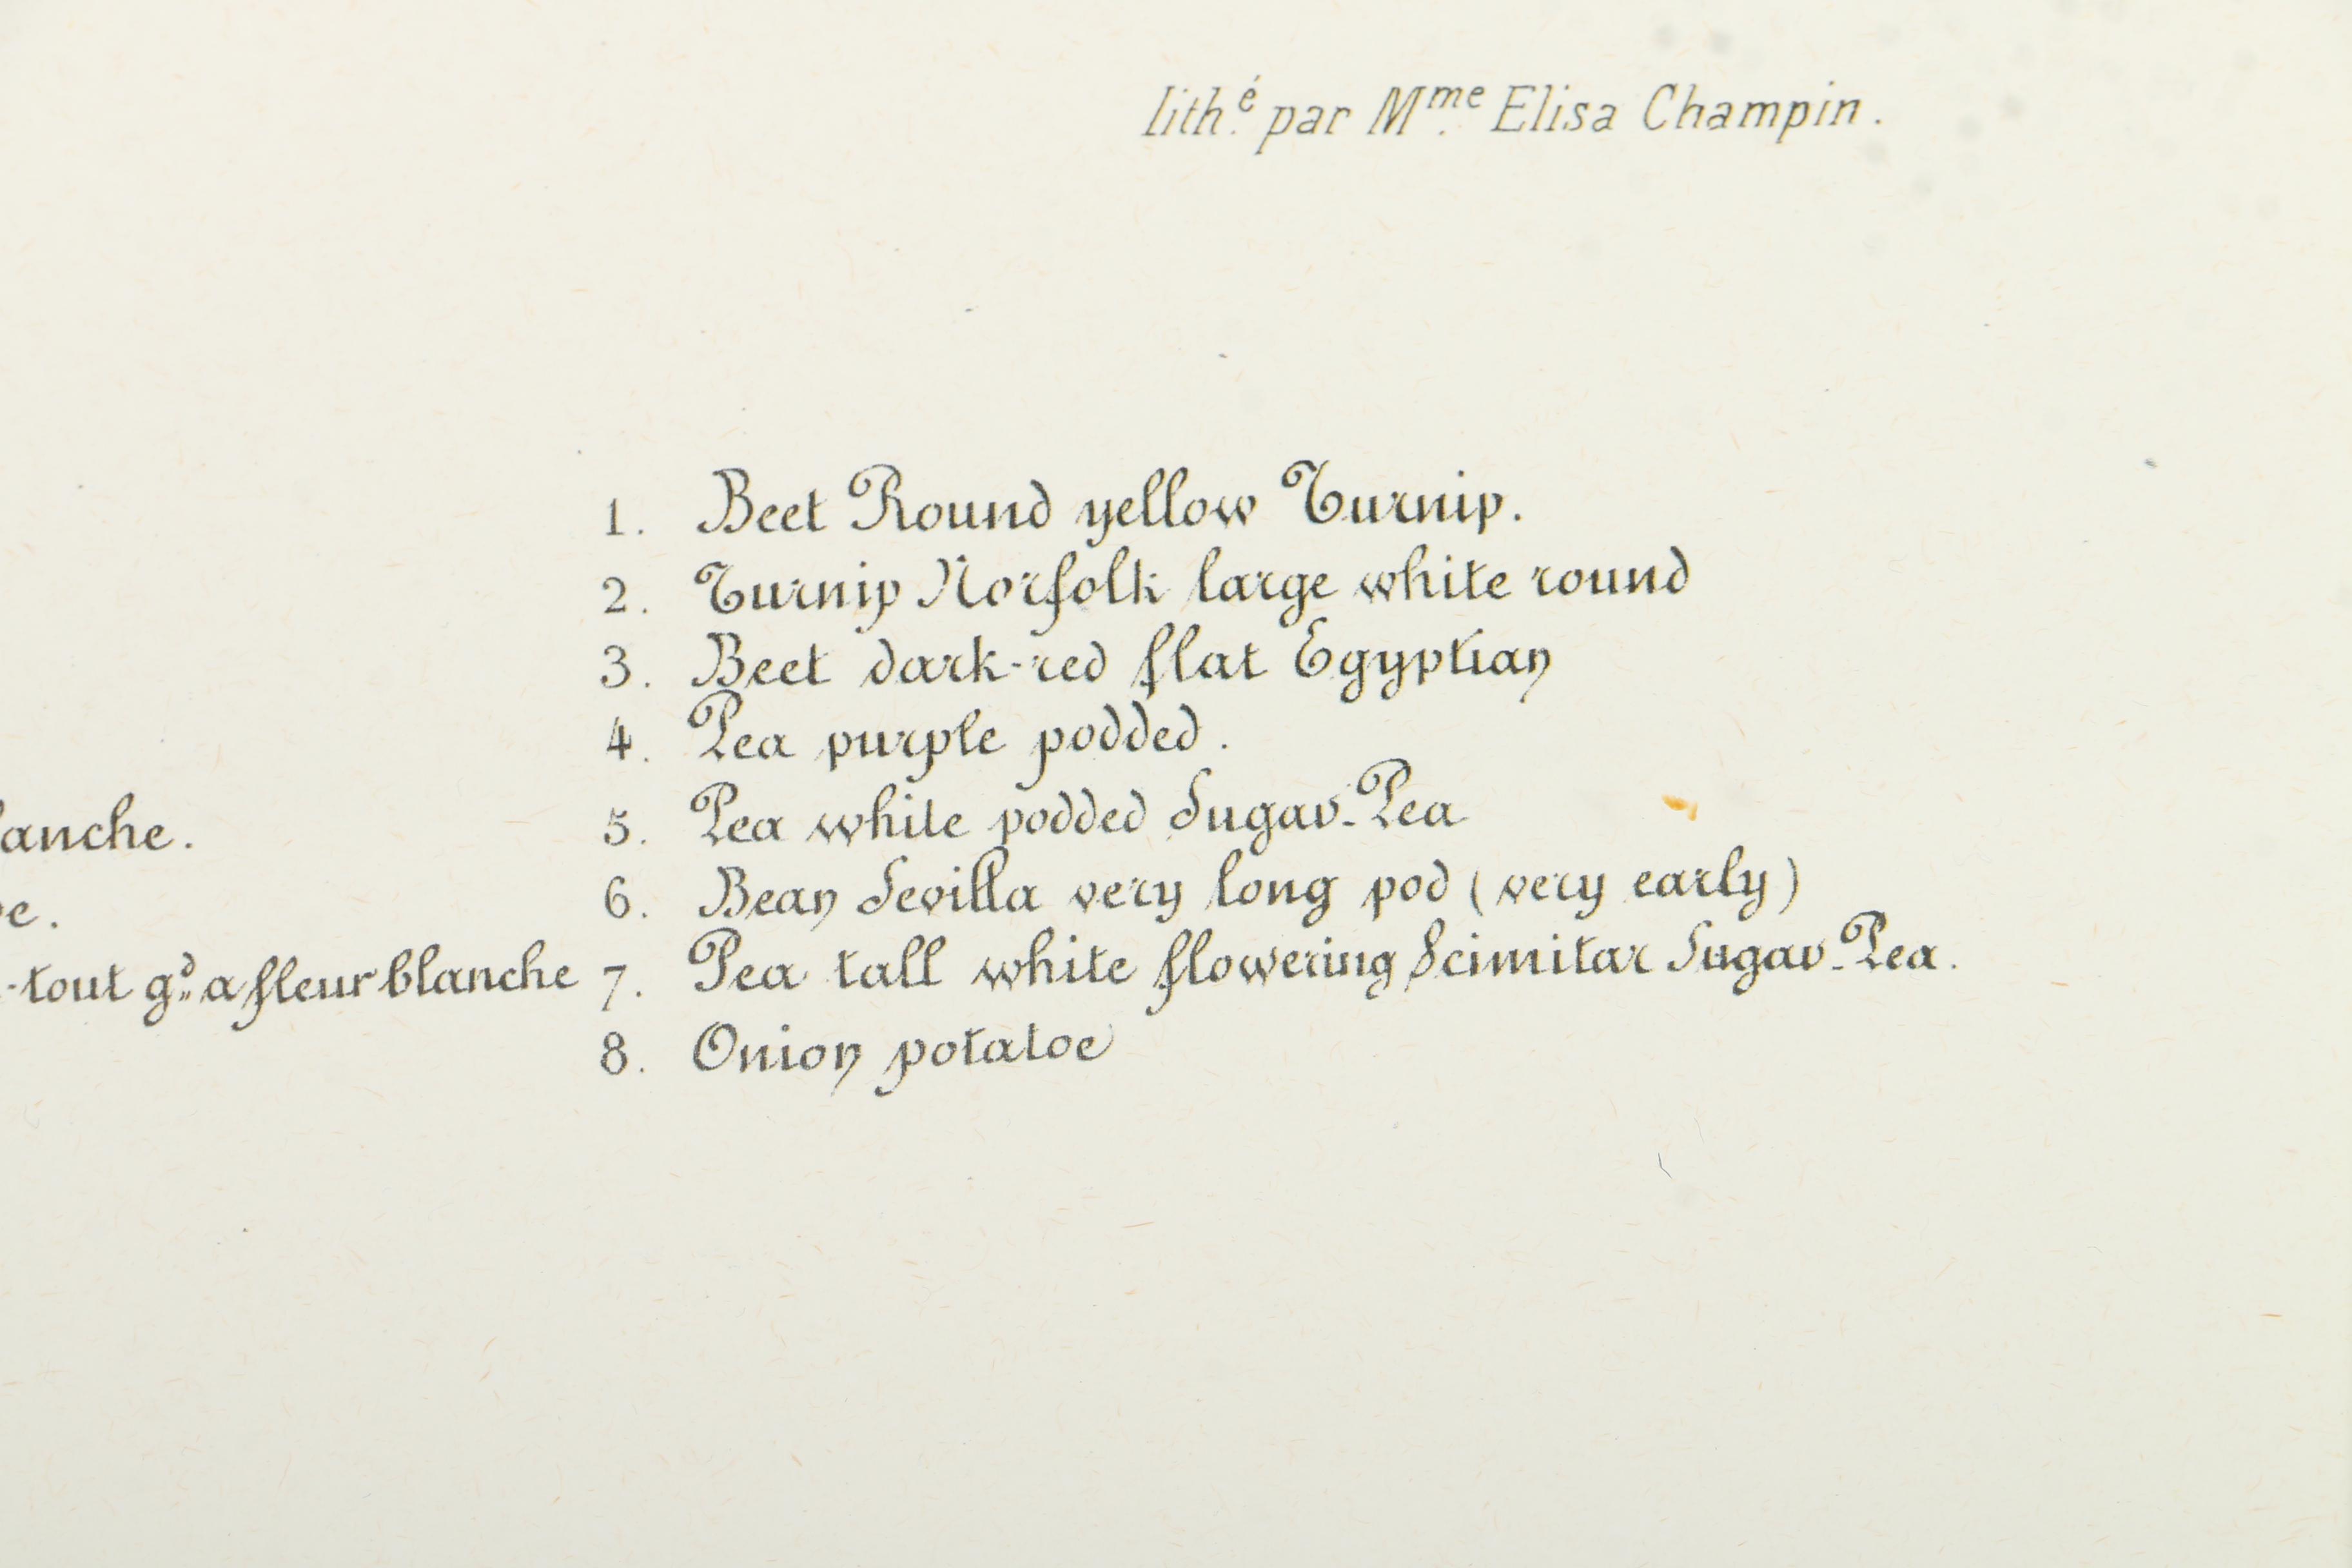 lith.é par Mme Elisa Champin.
1. Beet Round yellow Turnip.
2. Turnip Norfolk large white round
3. Beet dark-red flat Egyptian
4. Pea purple podded.
5. Pea white podded Sugar-Pea
6. Bean Sevilla very long pod (very early)
7. Pea tall white flowering Scimitar Sugar-Pea.
8. Onion potatoe
anche.
e.
-tout gd a fleur blanche